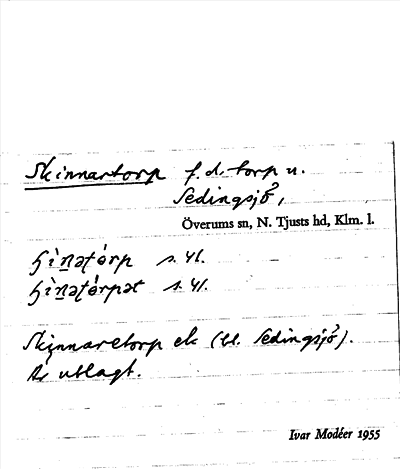 Skinnartorp f.d. torp u.
Sedingsjö,
Överums sn, N. Tjusts hd, Klm. l.
s. 41.
s. 41.
Skinnaretorp ek (bl. Sedingsjö).
Är utlagt.
Ivar Modéer 1955